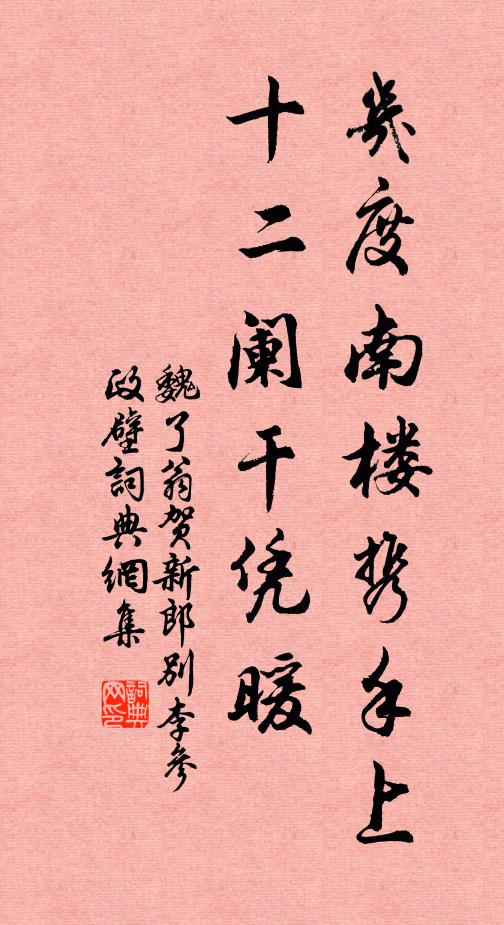 几度南楼携手上
十二阑干凭暖
魏了翁贺新郎别李參
政壁詞典網集
詞典网印